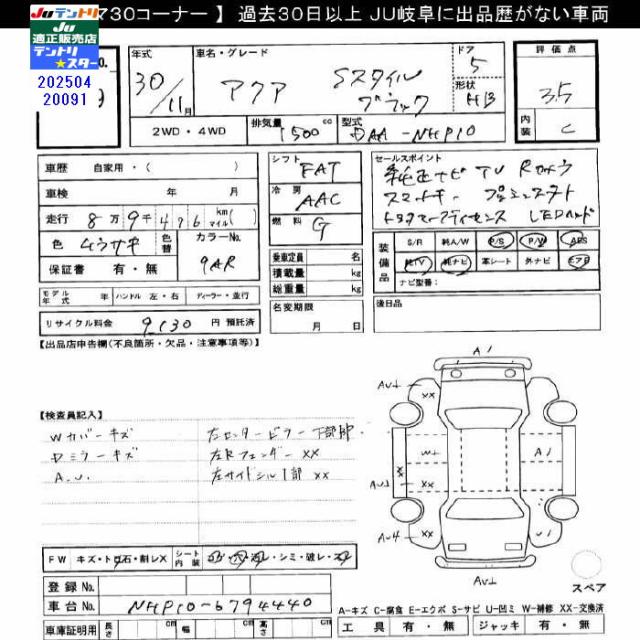 マ30コーナー 】 過去30日以上 JU岐阜に出品歴がない車両
Juテントリ
Ju
適正販売店
テントリ
★スター
202504
20091
年式
車名・グレード
ドア
評価点
30/11月
アクア Sスタイル
ブラック
5
形状
HB
3.5
2WD・4WD
排気量
1500 cc
型式
DAA-NHP10
内装
C
車歴 自家用・( )
シフト
FAT
セールスポイント
純正ナビ TV Rカメラ
車検 年 月
冷房
AAC
スマートキー プッシュスタート
走行 8万9千476 km(マイル)
燃料
G
LEDヘッド
色
色替
カラーNo.
9AR
保証書 有・無
乗車定員 名
積載量 kg
総重量 kg
装備品
S/R 純A/W P/S P/W ABS
純TV 純ナビ 本シート 外ナビ エアB
ナビ型番:
モデル年式 年 ハンドル 左・右 ディーラー・並行
名変期限
月 日
後日品
リサイクル料金 9130 円 預託済
【出品店申告欄(不良箇所・欠品・注意事項等)】
【検査員記入】
Wカバーキズ 左センターピラー下部
Dミラーキズ 左Rフェンダー XX
A.U. 左サイドシル1部 XX
A1
XX
XX
XX
XX
U1
FW キズ・トビ石・割レX
シート内装
シミ・破レ
スペア
登録 No.
車台 No. NHP10-6794440
A―キズ C―腐食 E―エクボ S―サビ U―凹ミ W―補修 XX―交換済
車庫証明用 長さ cm 幅 cm 高さ cm
工具 有・無 ジャッキ 有・無